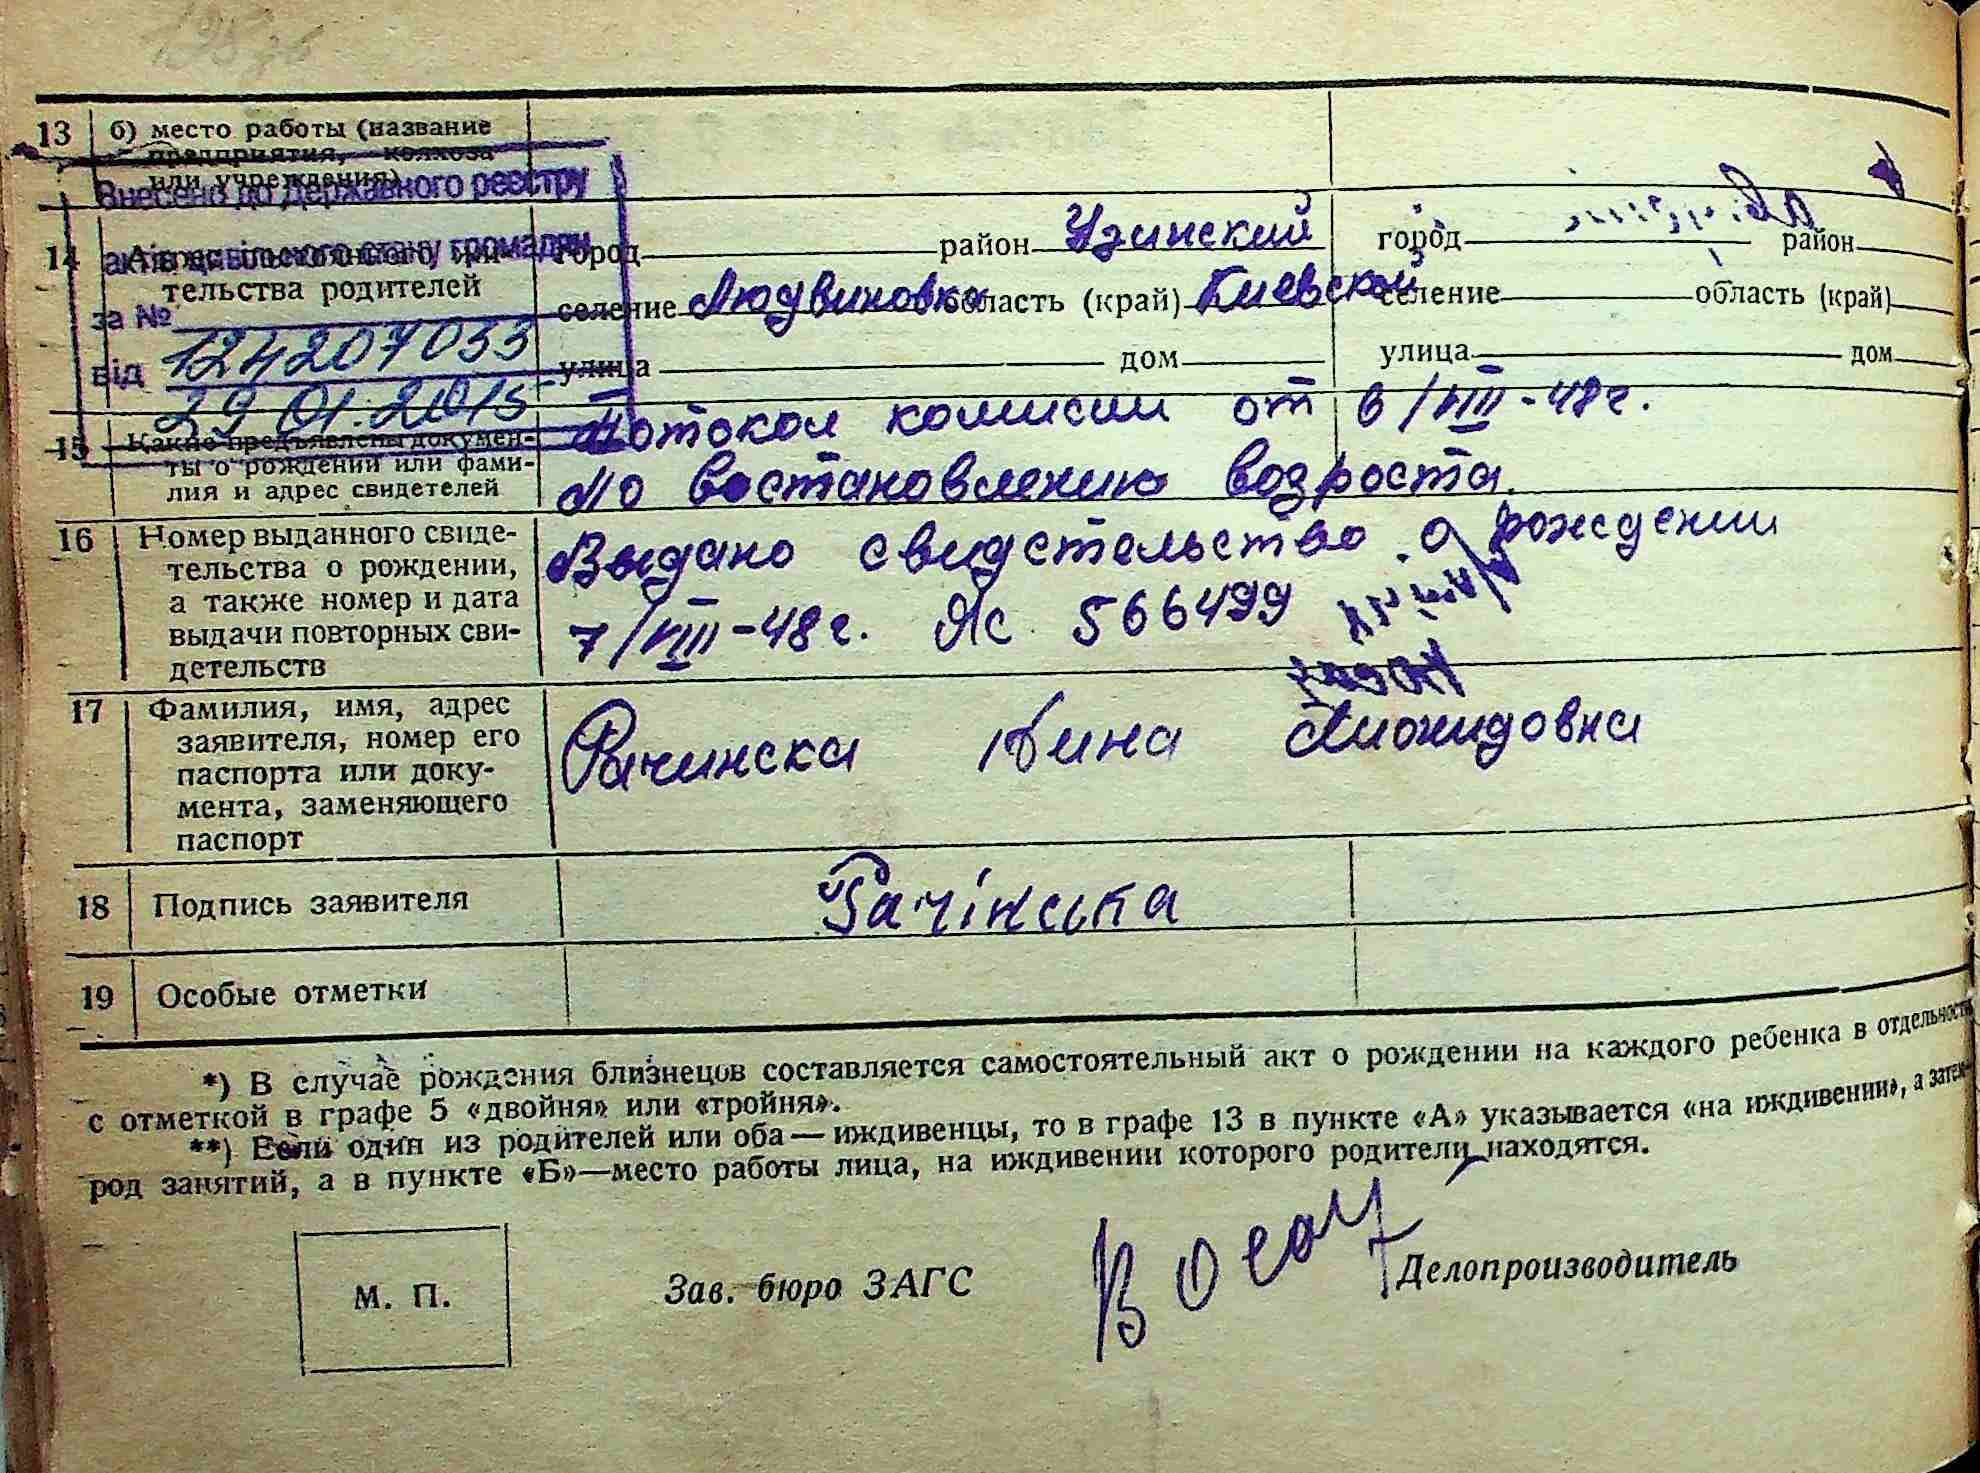 13 б) место работы (название
предприятия, колхоза
или учреждения)
Внесено до Державного реєстру
актів цивільного стану громадян
за № 124207033
від 29.01.2015
14 Адрес постоянного жительства родителей
город район Узинский город район
селение Людвиновка область (край) Киевской селение область (край)
улица дом улица дом
15 Какие предъявлены докумен-
ты о рождении или фами-
лия и адрес свидетелей
Потокол комисии от 6/VIII-48г.
по востановлению возроста.
16 Номер выданного свиде-
тельства о рождении,
а также номер и дата
выдачи повторных сви-
детельств
Выдано свидетельство о рождении
7/VIII-48г. Яс 566499
17 Фамилия, имя, адрес
заявителя, номер его
паспорта или доку-
мента, заменяющего
паспорт
Рачинска
18 Подпись заявителя Рачінська
19 Особые отметки
*) В случае рождения близнецов составляется самостоятельный акт о рождении на каждого ребенка в отдельности
с отметкой в графе 5 «двойня» или «тройня».
**) Если один из родителей или оба — иждивенцы, то в графе 13 в пункте «А» указывается «на иждивении», а затем
род занятий, а в пункте «Б»—место работы лица, на иждивении которого родители находятся.
М. П. Зав. бюро ЗАГС Делопроизводитель